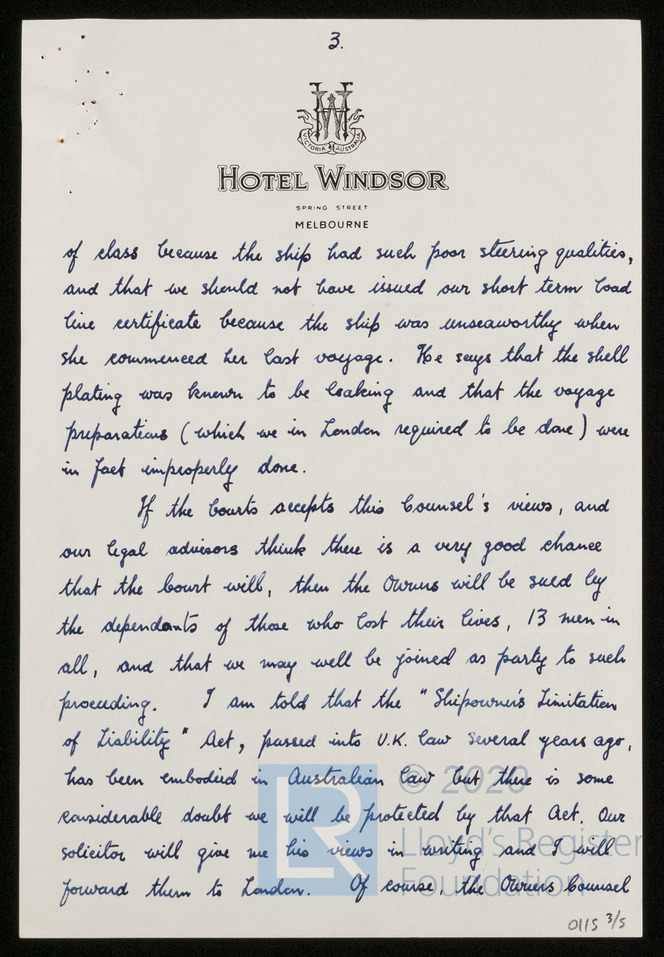 3.
VICTORIA AUSTRALIA
HOTEL WINDSOR
SPRING STREET
MELBOURNE
of class because the ship had such poor steering qualities,
and that we should not have issued our short term load
line certificate because the ship was unseaworthy when
she commenced her last voyage. He says that the shell
plating was known to be leaking and that the voyage
preparations (which we in London required to be done) were
in fact improperly done.
If the Courts accepts this Counsel's views, and
our legal advisors think there is a very good chance
that the Court will, then the Owners will be sued by
the dependants of those who lost their lives, 13 men in
all, and that we may well be joined as party to such
proceeding. I am told that the "Shipowner's Limitation
of Liability" Act, passed into U.K. law several years ago,
has been embodied in Australian law but there is some
considerable doubt we will be protected by that Act. Our
solicitor will give me his views in writing and I will
forward them to London. Of course, the Owners Counsel
© 2020
LR
Lloyd's Register
Foundation
0115 3/5